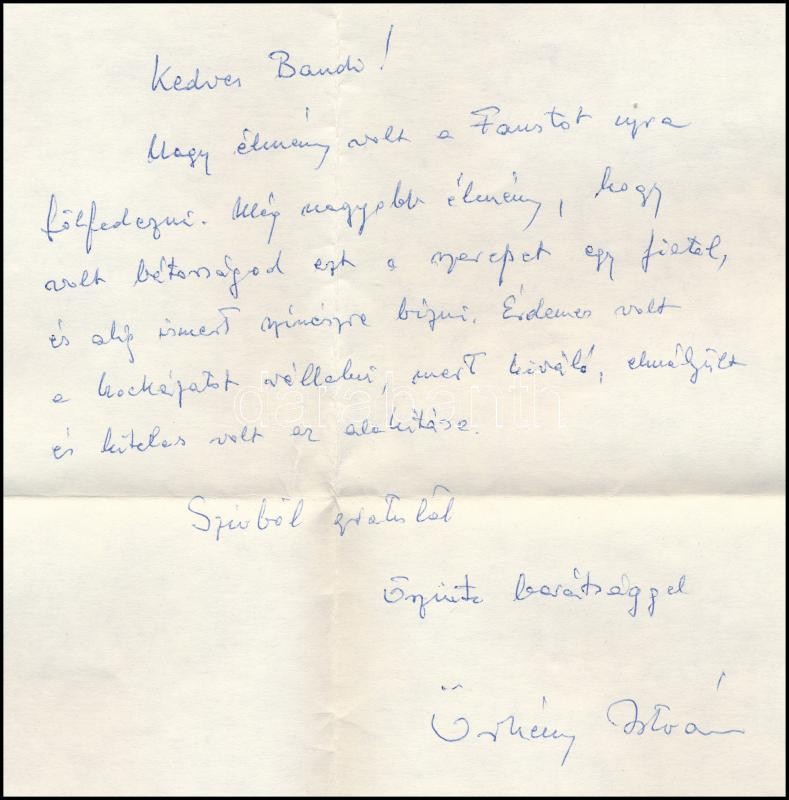 Kedves Bandi!
Nagy élmény volt a Faustot ujra
fölfedezni. Még nagyobb élmény, hogy
volt bátorságod ezt a szerepet egy fiatal,
és alig ismert szinészre bizni. Érdemes volt
a kockázatot vállalni, mert kiváló, elmélyült
és hiteles volt az alakitása.
Szivből gratulál
Őszinte barátsággal
Örkény István
darabanth